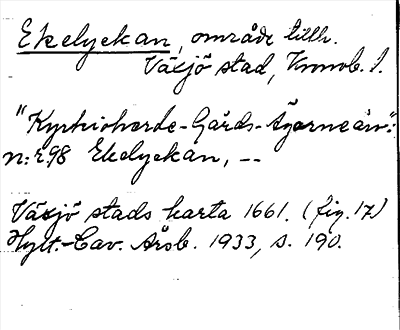 Ekelyckan, område tillh.
Växjö stad, Kronob. l.
"Kyrkioherde-Gårds-Ägorne äro":
n:r 98 Ekelyckan, --
Växjö stads karta 1661. (fig. 17)
Hylt.-Cav. Årsb. 1933, s. 190.